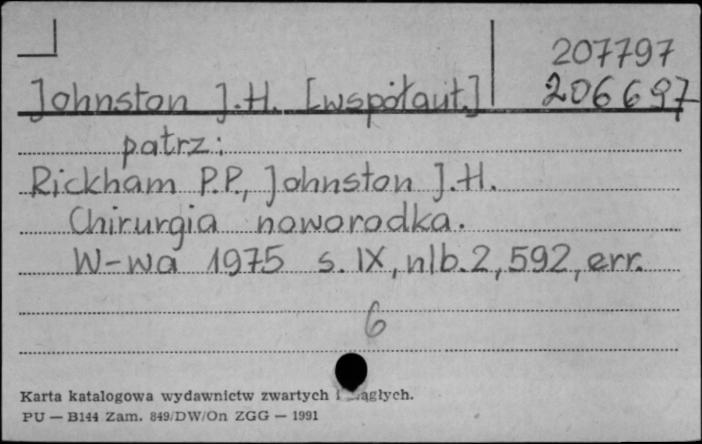 207797
Johnston J.H. [współaut.] 206697
patrz:
Rickham P.P., Johnston J.H.
Chirurgia noworodka.
W-wa 1975 s. IX, nlb. 2, 592, err.
6
Karta katalogowa wydawnictw zwartych i
PU — B144 Zam. 849/DW/On ZGG — 1991